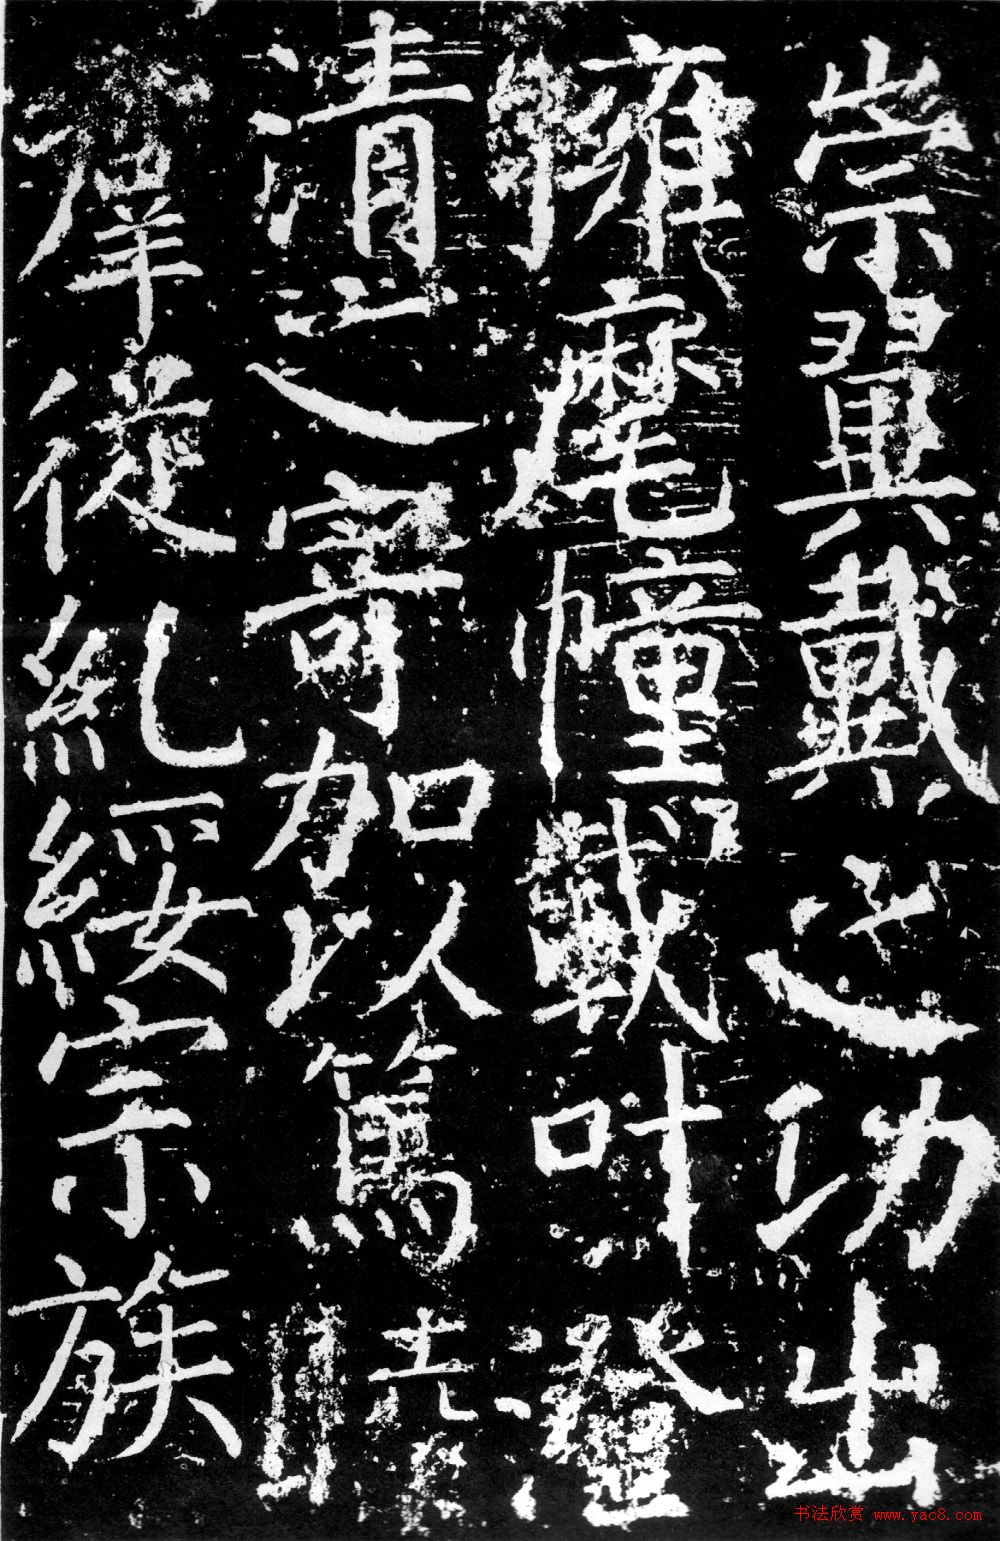 崇翼戴之功出
擁麾幢載叶澄
清之寄加以篤
從糺綏宗族
书法欣赏 www.yac8.com